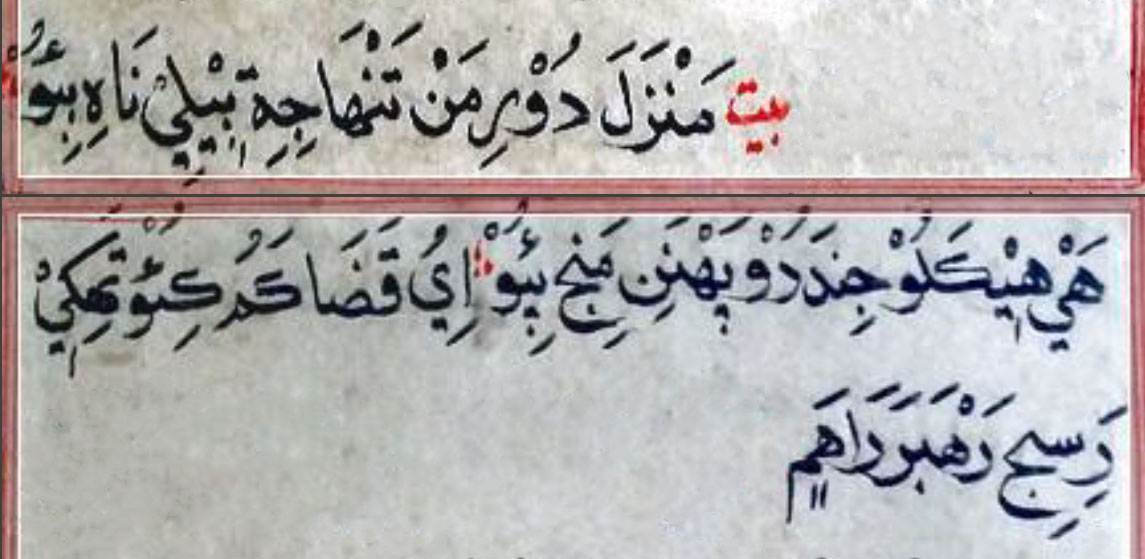 بيت مَنْزَلَ دُوْرِ مَنْ تَنْهَا جِةِ بٖيْلِيْ نَاهِ بِئَوُ
هَيْ هٖيْكَلُوْ جِندَرُوْ پَهْنَنِ مَنجِ پِئَوُ اِيُ قَضَا كَمُ كِئَوُ تَهِكِيْ
رَسِجِ رَهْبَرَ رَاهَمٖ